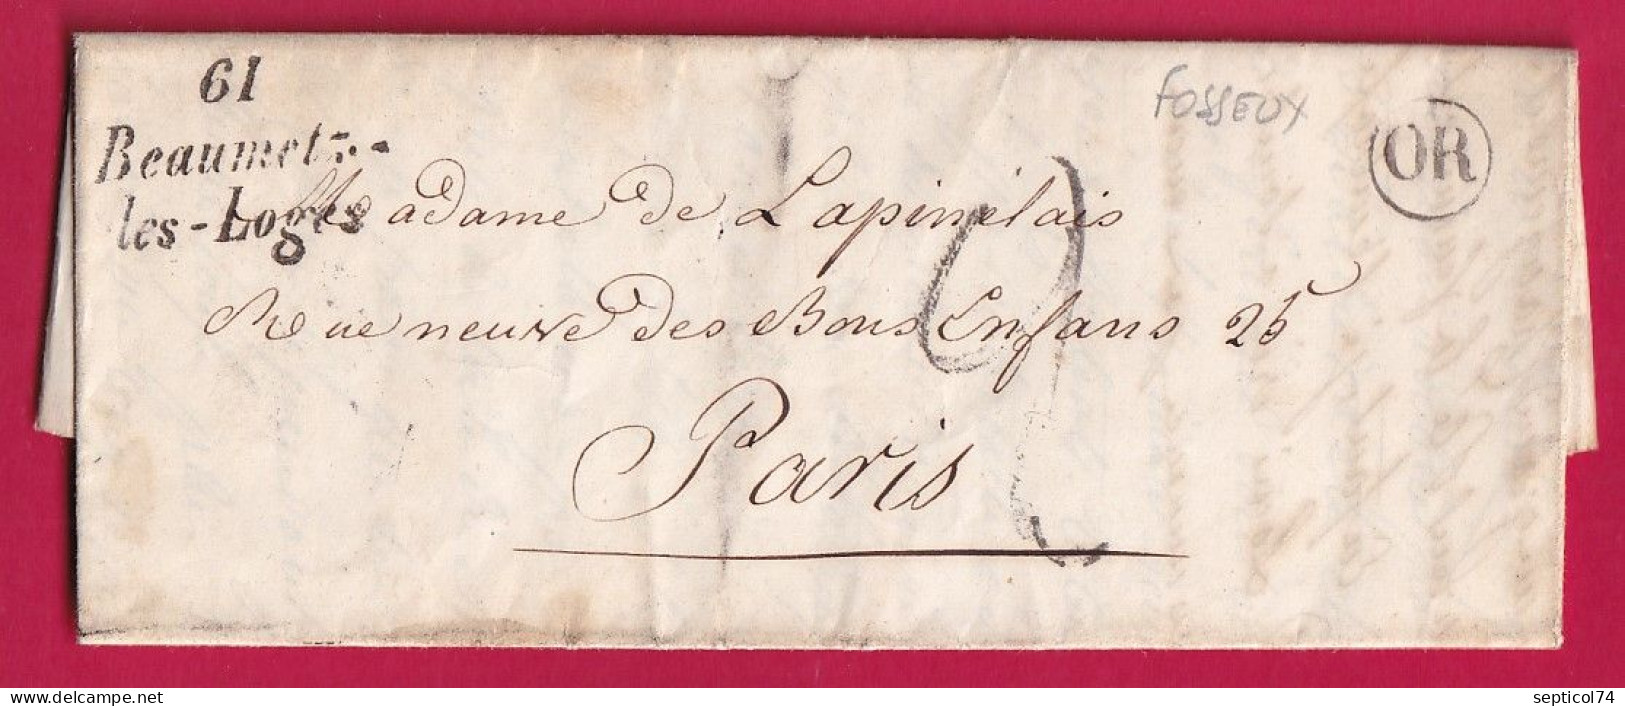 61
Beaumetz-
les-Loges
FOSSEUX
OR
Madame de Lapinelais
Rue neuve des Bons Enfans 25
Paris
delcampe.net
septicol74